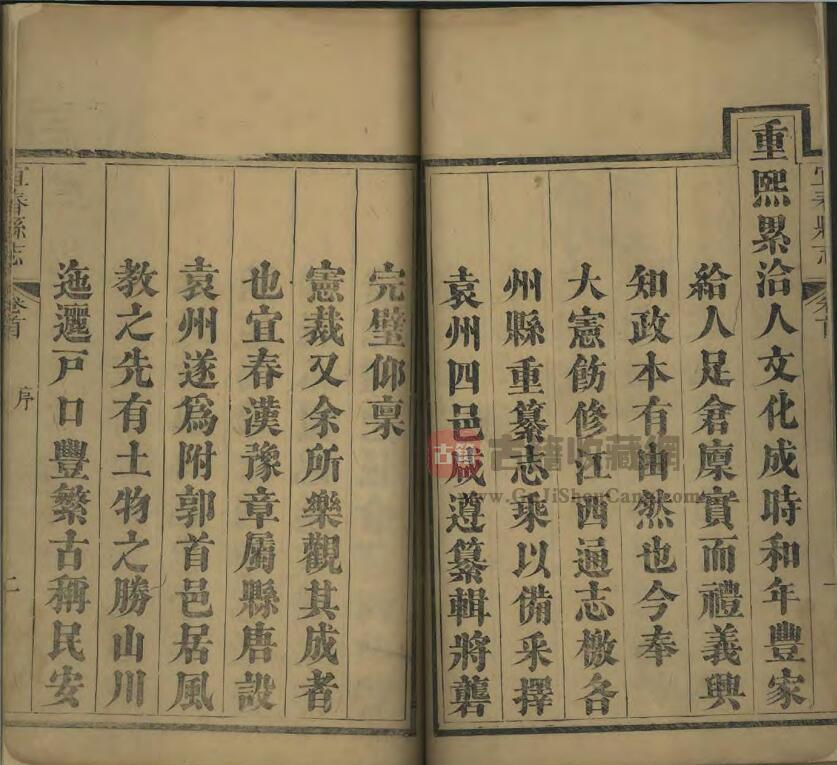 宜春縣志 卷首
重熙累洽人文化成時和年豐家
給人足倉廩實而禮義興
知政本有由然也今奉
大憲飭修江西通志檄各
州縣重纂志乘以備采擇
袁州四邑咸遵纂輯將礱
完璧仰稟
憲裁又余所樂觀其成者
也宜春漢豫章屬縣唐設
袁州遂爲附郭首邑居風
教之先有土物之勝山川
迤邐戸口豐繁古稱民安
宜春縣志 卷首 序 二
古籍
古籍收藏網
www.GuJiShouCang.com